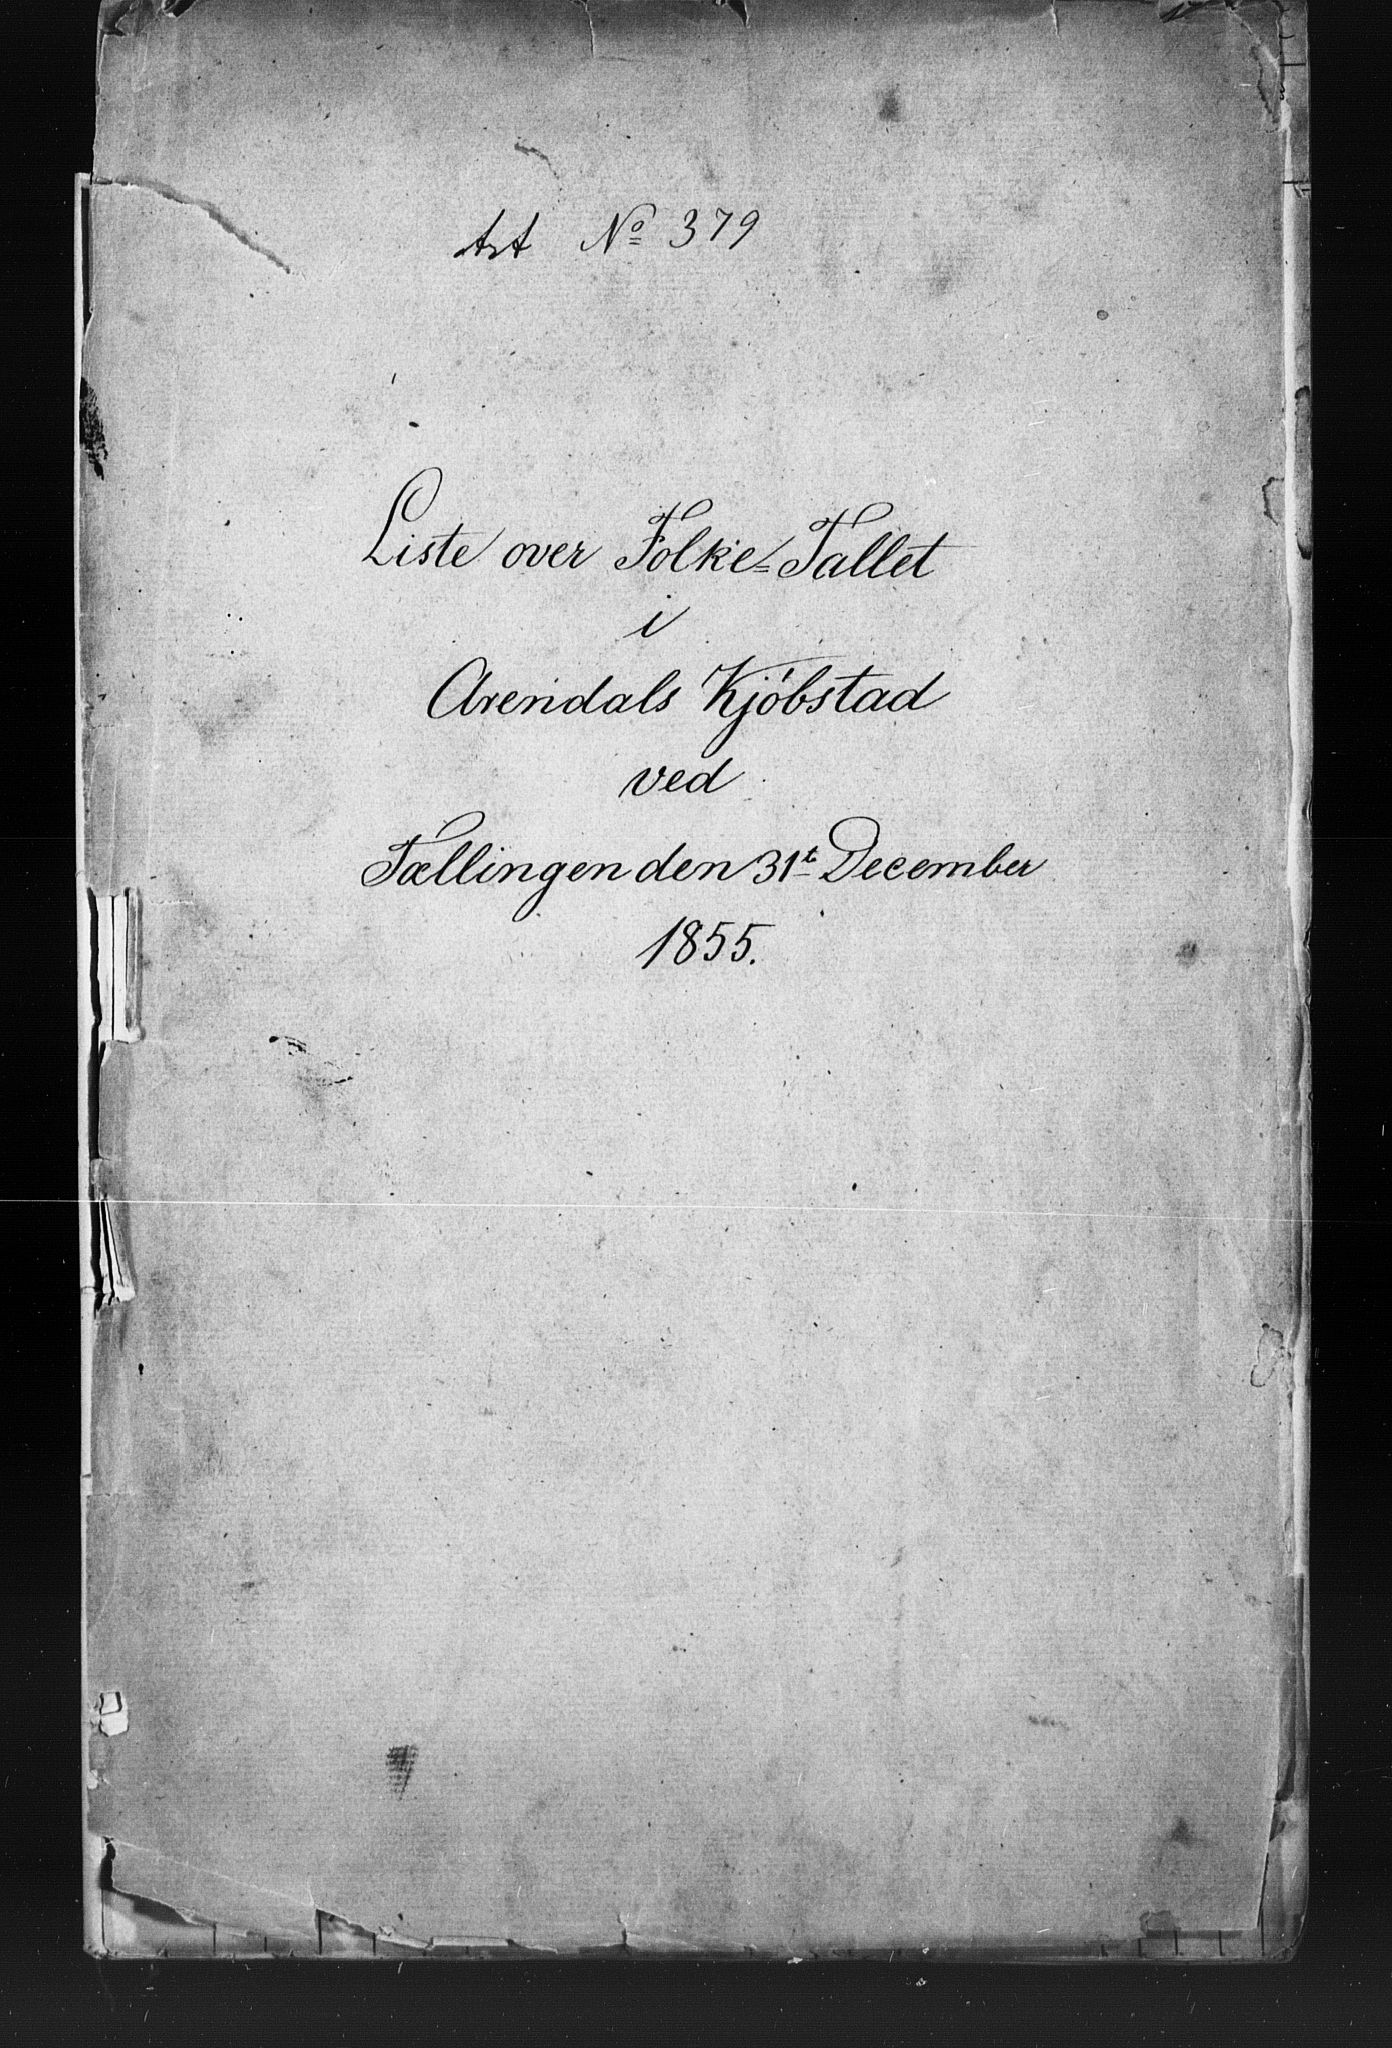 Act Nº 379
Liste over Folke=Tallet
i
Arendals Kjöbstad
ved
Tællingen den 31t December
1855.